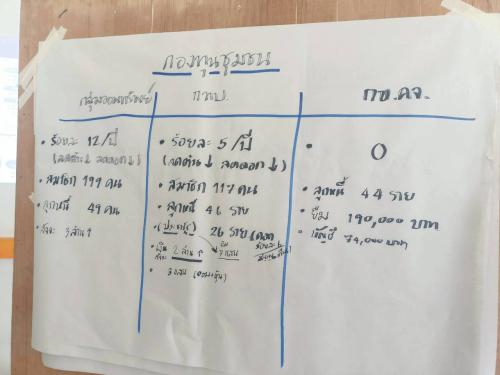 กองทุนชุมชน
กลุ่มออมทรัพย์
• ร้อยละ 12/ปี
(ลดต้น↓ ลดดอก↓)
• สมาชิก 199 คน
• ลูกหนี้ 49 คน
• 3 ล้าน↑
กทบ.
• ร้อยละ 5/ปี
(ลดต้น↓ ลดดอก↓)
• สมาชิก 117 คน
• ลูกหนี้ 46 ราย
• 26 ราย
• เงิน 2 ล้าน↑ ยืม
• 3 แสน
กข.คจ.
• 0
• ลูกหนี้ 44 ราย
• ยืม 190,000 บาท
• บัญชี 74,000 บาท